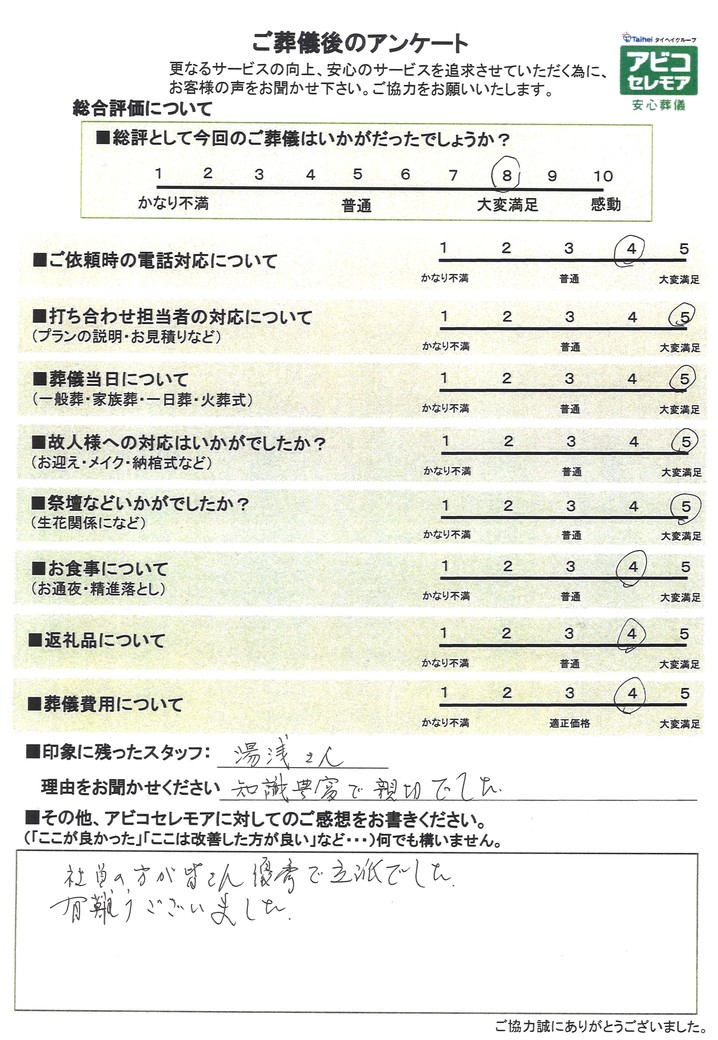 ご葬儀後のアンケート
Taihei タイヘイグループ
アビコ
セレモア
安心葬儀
更なるサービスの向上、安心のサービスを追求させていただく為に、
お客様の声をお聞かせ下さい。ご協力をお願いいたします。
総合評価について
■総評として今回のご葬儀はいかがだったでしょうか？
1 2 3 4 5 6 7 8 9 10
かなり不満 普通 大変満足 感動
■ご依頼時の電話対応について
1 2 3 4 5
かなり不満 普通 大変満足
■打ち合わせ担当者の対応について
（プランの説明・お見積りなど）
1 2 3 4 5
かなり不満 普通 大変満足
■葬儀当日について
（一般葬・家族葬・一日葬・火葬式）
1 2 3 4 5
かなり不満 普通 大変満足
■故人様への対応はいかがでしたか？
（お迎え・メイク・納棺式など）
1 2 3 4 5
かなり不満 普通 大変満足
■祭壇などいかがでしたか？
（生花関係になど）
1 2 3 4 5
かなり不満 普通 大変満足
■お食事について
（お通夜・精進落とし）
1 2 3 4 5
かなり不満 普通 大変満足
■返礼品について
1 2 3 4 5
かなり不満 普通 大変満足
■葬儀費用について
1 2 3 4 5
かなり不満 適正価格 大変満足
■印象に残ったスタッフ： 湯浅さん
理由をお聞かせください 知識豊富で親切でした。
■その他、アビコセレモアに対してのご感想をお書きください。
（「ここが良かった」「ここは改善した方が良い」など・・・）何でも構いません。
社員の方が皆さん優秀で立派でした。
有難うございました。
ご協力誠にありがとうございました。